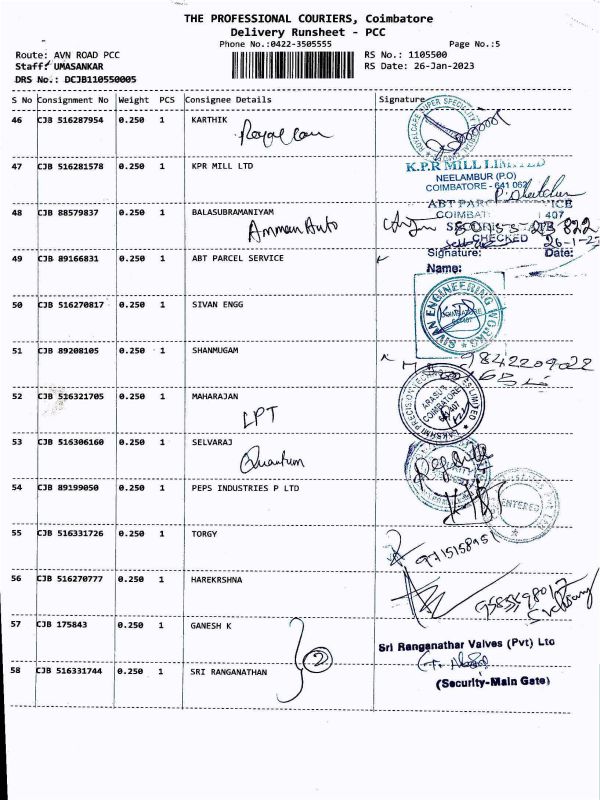 THE PROFESSIONAL COURIERS, Coimbatore
Delivery Runsheet - PCC
Phone No.:0422-3505555 Page No.:5
Route: AVN ROAD PCC RS No.: 1105500
Staff: UMASANKAR RS Date: 26-Jan-2023
DRS No.: DCJB110550005
S No Consignment No Weight PCS Consignee Details Signature
46 CJB 516287954 0.250 1 KARTHIK
47 CJB 516281578 0.250 1 KPR MILL LTD
K.P.R MILL LIMITED
NEELAMBUR (P.O)
COIMBATORE - 641 062
48 CJB 88579837 0.250 1 BALASUBRAMANIYAM
Amman Auto
CHECKED
Signature: Date:
Name:
49 CJB 89166831 0.250 1 ABT PARCEL SERVICE
50 CJB 516270817 0.250 1 SIVAN ENGG
SIVAN ENGINEERING WORKS
51 CJB 89208105 0.250 1 SHANMUGAM
9842209022
52 CJB 516321705 0.250 1 MAHARAJAN
LPT
53 CJB 516306160 0.250 1 SELVARAJ
Quantum
54 CJB 89199050 0.250 1 PEPS INDUSTRIES P LTD
ENTERED
55 CJB 516331726 0.250 1 TORGY
9715158951
56 CJB 516270777 0.250 1 HAREKRSHNA
57 CJB 175843 0.250 1 GANESH K
2
Sri Ranganathar Valves (Pvt) Ltd
58 CJB 516331744 0.250 1 SRI RANGANATHAN
(Security-Main Gate)